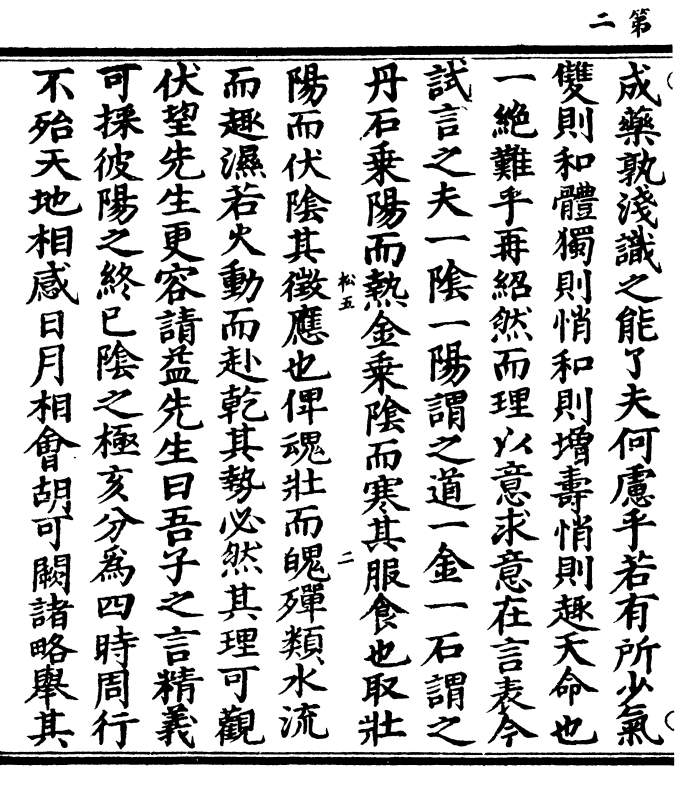 第
二
成藥孰淺識之能了夫何慮乎若有所少氣
雙則和體獨則悄和則增壽悄則趣夭命也
一絶難乎再紹然而理以意求意在言表今
試言之夫一陰一陽謂之道一金一石謂之
丹石乗陽而熱金乗陰而寒其服食也取壯
松五
二
陽而伏陰其徵應也俾魂壯而魄殫類水流
而趣濕若火動而赴乾其勢必然其理可觀
伏望先生更容請益先生曰吾子之言精義
可採彼陽之終巳陰之極亥分爲四時周行
不殆天地相感日月相會胡可闕諸略舉其